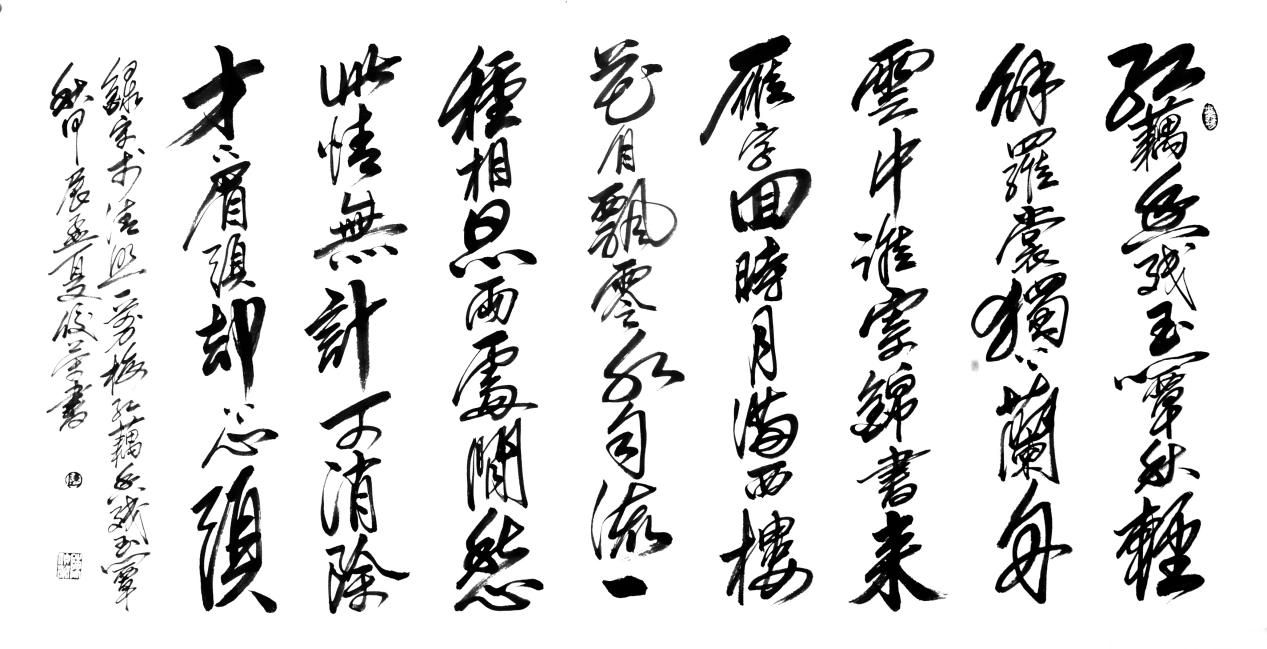 紅藕香残玉簟秋輕
解羅裳獨上蘭舟
雲中誰寄錦書来
雁字回時月滿西樓
花自飄零水自流一
種相思兩處閒愁
此情無計可消除
才下眉頭却上心頭
錄宋李清照一剪梅紅藕香残玉簟
秋甲辰孟夏俊書